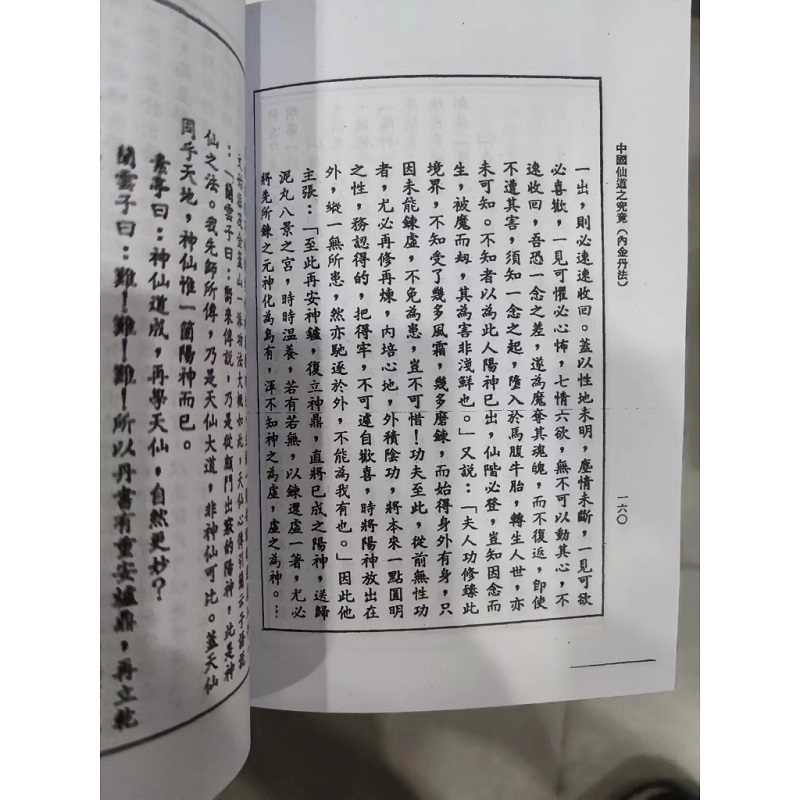 中國仙道之究竟（內金丹法）
一六〇
一出，則必速速收回。蓋以性地未明，塵情未斷，一見可欲
必喜歡，一見可懼必心怖，七情六欲，無不可以動其心，不
速收回，吾恐一念之差，遂為魔奪其魂魄，而不復返，即使
不遭其害，須知一念之起，墮入於馬腹牛胎，轉生人世，亦
未可知。不知者以為此人陽神已出，仙階必登，豈知因念而
生，被魔而刼，其為害非淺鮮也。」又說：「夫人功修臻此
境界，不知受了幾多風霜，幾多磨鍊，而始得身外有身，只
因未能鍊虛，不免為患，豈不可惜！功夫至此，從前無性功
者，尤必再修再煉，內培心地，外積陰功，將本來一點圓明
之性，務認得的，把得牢，不可遽自歡喜，時將陽神放出在
外，縱一無所患，然亦馳逐於外，不能為我有也。」因此他
主張：「至此再安神鑪，復立神鼎，直將已成之陽神，送歸
泥丸八景之宮，時時溫養，若有若無，以鍊還虛一著，尤必
將先所鍊之元神化為烏有，渾不知神之為虛，虛之為神。…
：「閩雲子曰：
傳說，乃是從顖門出竅的陽神，此是神
仙之法。我先師所傳，乃是天仙大道，非神仙可比。蓋天仙
同乎天地，神仙惟一箇陽神而已。
曰：神仙道成，再學天仙，自然更妙？
閩雲子曰：難！難！難！所以丹書有重安爐鼎，再立乾